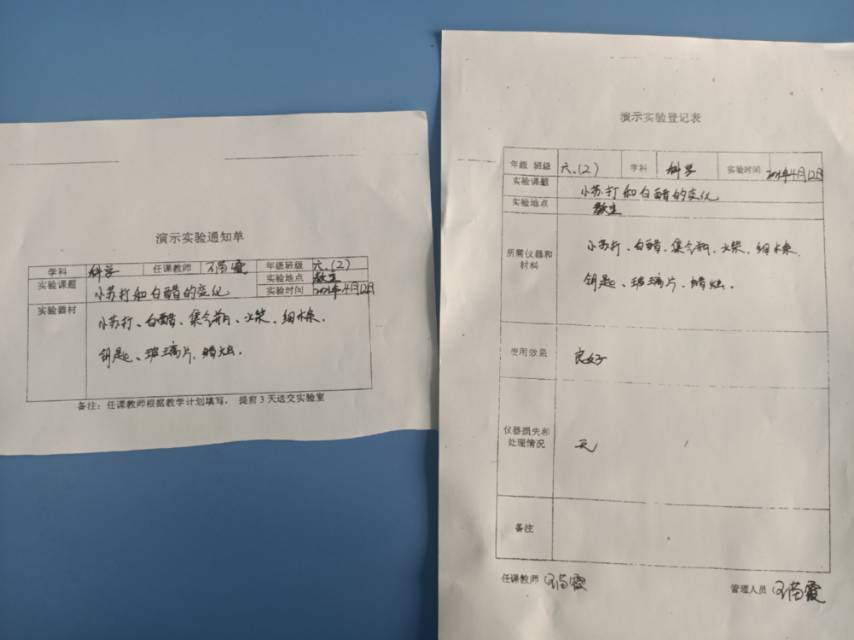 演示实验通知单
学科 科学 任课教师 年级班级 六.(2)
实验课题 小苏打和白醋的变化 实验地点 教室
实验时间 4月12日
实验器材 小苏打、白醋、集气瓶、火柴、细木条、
钥匙、玻璃片、蜡烛.
备注:任课教师根据教学计划填写, 提前3天送交实验室
演示实验登记表
年级 班级 六.(2) 学科 科学 实验时间 4月12日
实验课题 小苏打和白醋的变化
实验地点 教室
所需仪器和材料 小苏打、白醋、集气瓶、火柴、细木条、
钥匙、玻璃片、蜡烛.
使用效果 良好
仪器损失和
处理情况 无
备注
任课教师
管理人员